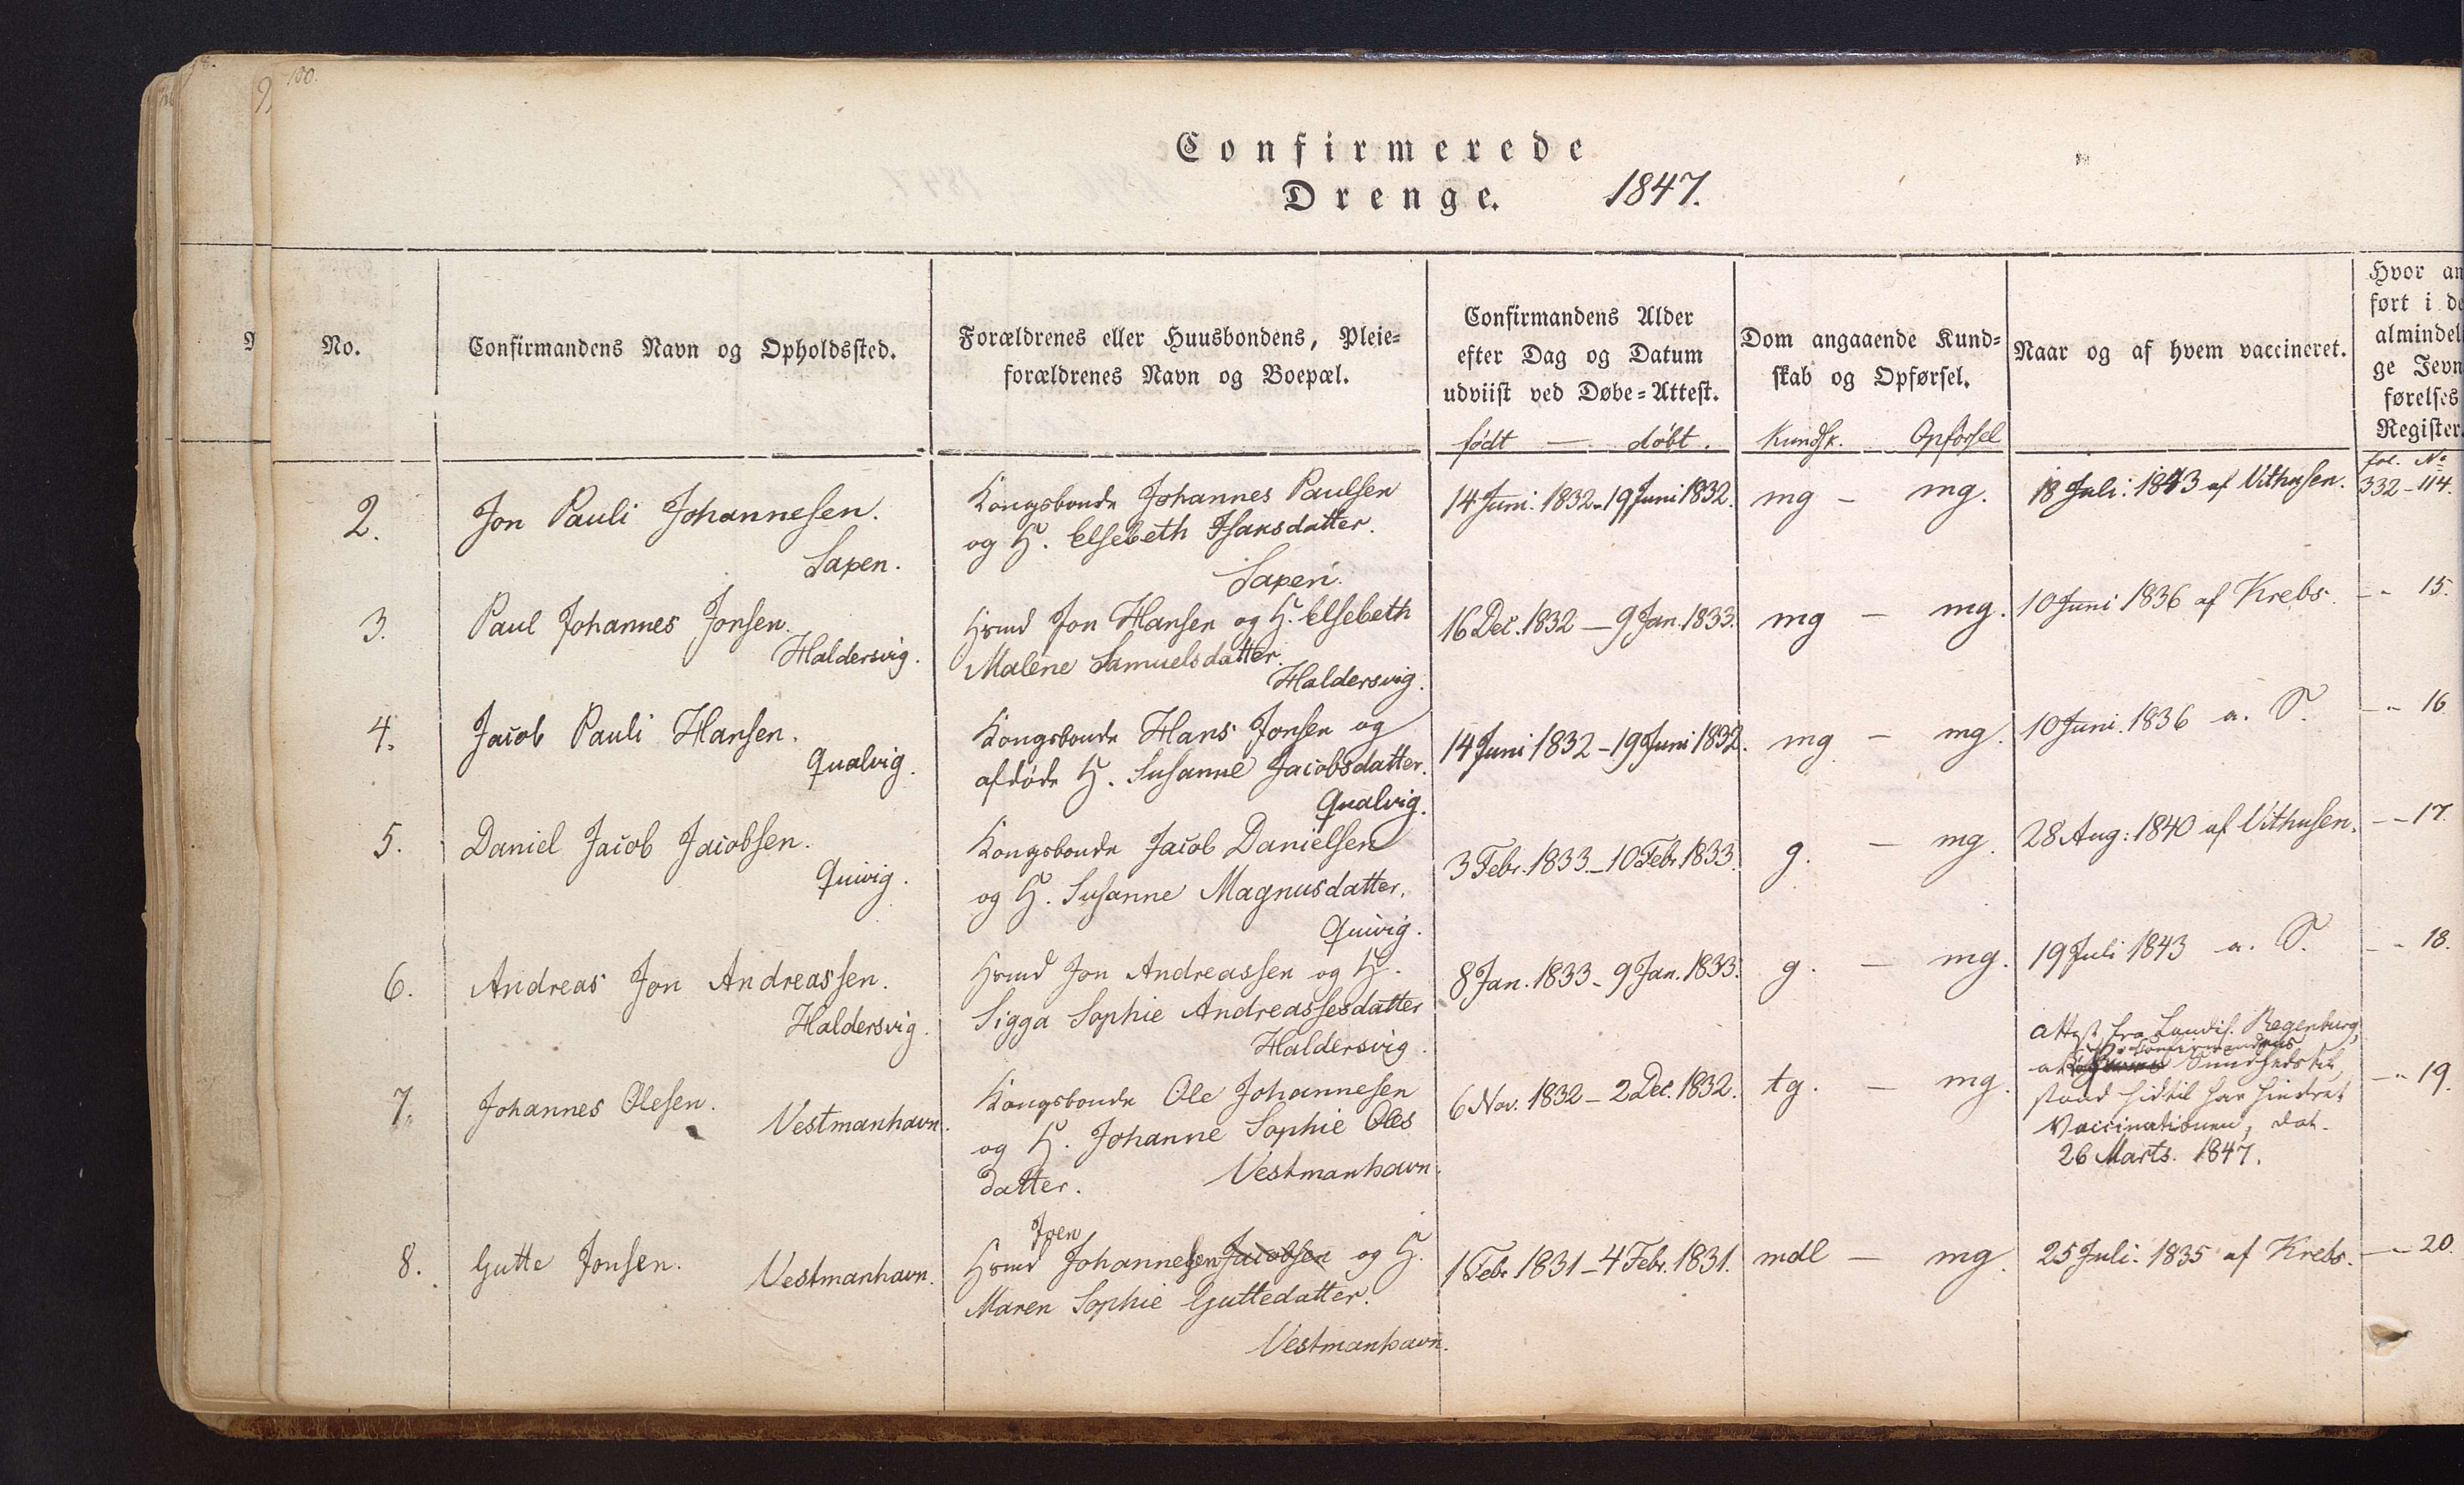 100.
Confirmerede
Drenge. 1847.
No.
Confirmandens Navn og Opholdssted.
Forældrenes eller Huusbondens, Pleie=
forældrenes Navn og Boepæl.
Confirmandens Alder
efter Dag og Datum
udviist ved Døbe=Attest.
født — døbt.
Dom angaaende Kund=
skab og Opførsel.
Kundsk. Opførsel
Naar og af hvem vaccineret.
Hvor an
ført i de
almindel
ge Jevn
førelses
Register.
fol. No
2.
Jon Pauli Johannesen.
Saxen.
Kongsbonde Johannes Paulsen
og H. Elsebeth Isaksdatter.
Saxen.
14 Juni. 1832 - 19 Juni 1832.
mg - mg.
18 Juli. 1843 af Vithusen.
332 - 114.
3.
Paul Johannes Jonsen.
Haldersvig.
Hsmd Jon Hansen og H. Elsebeth
Malene Samuelsdatter.
Haldersvig.
16 Dec. 1832 — 9 Jan. 1833.
mg — mg.
10 Juni 1836 af Krebs.
- - 15.
4.
Jacob Pauli Hansen.
Qualvig.
Kongsbonde Hans Jonsen og
afdøde H. Susanne Jacobsdatter.
Qualvig.
14 Juni 1832 - 19 Juni 1832.
mg - mg.
10 Juni. 1836 a. S.
- - 16
5.
Daniel Jacob Jacobsen.
Quivig.
Kongsbonde Jacob Danielsen
og H. Susanne Magnusdatter.
Quivig.
3 Febr. 1833 - 10 Febr. 1833.
g. - mg.
28 Aug: 1840 af Vithusen.
- - 17.
6.
Andreas Jon Andreassen.
Haldersvig.
Hsmd Jon Andreassen og H.
Sigga Sophie Andreassesdatter
Haldersvig.
8 Jan. 1833 - 9 Jan. 1833.
g. - mg.
19 Juli 1843 a. S.
- - 18.
7.
Johannes Olesen.
Vestmanhavn.
Kongsbonde Ole Johannesen
og H. Johanne Sophie Oles
datter. Vestmanhavn.
6 Nov. 1832 - 2 Dec. 1832.
tg. - mg.
Attest fra Landch. Regenburg,
at Confirmandens Sundhedstil,
stand hidtil har hindret
Vaccinationen, dat.
26 Marts. 1847.
- - 19.
8.
Gutte Jonsen.
Vestmanhavn.
Joen
Hsmd Johannesen Jacobsen og H.
Maren Sophie Guttedatter.
Vestmanhavn.
1 Febr 1831 - 4 Febr. 1831.
mdl — mg.
25 Juli. 1835 af Krebs.
- - 20.